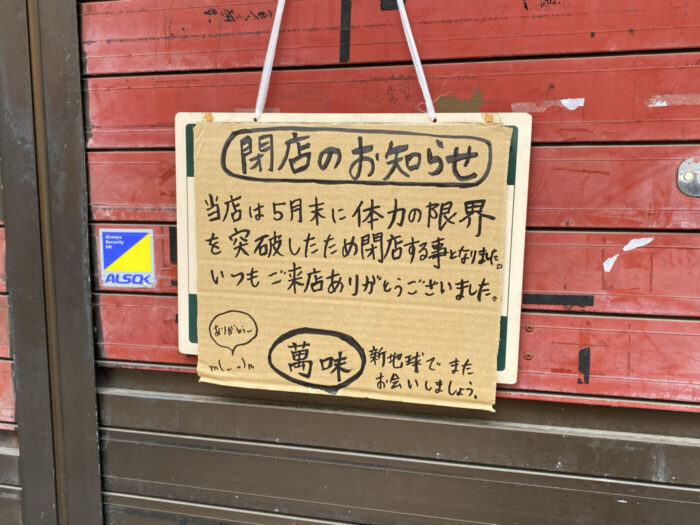 閉店のお知らせ
当店は5月末に体力の限界
を突破したため閉店する事となりました。
いつもご来店ありがとうございました。
ありがとう〜
m(_ _)m
萬味
新地球でまた
お会いしましょう。
Always
Security
OK
ALSOK